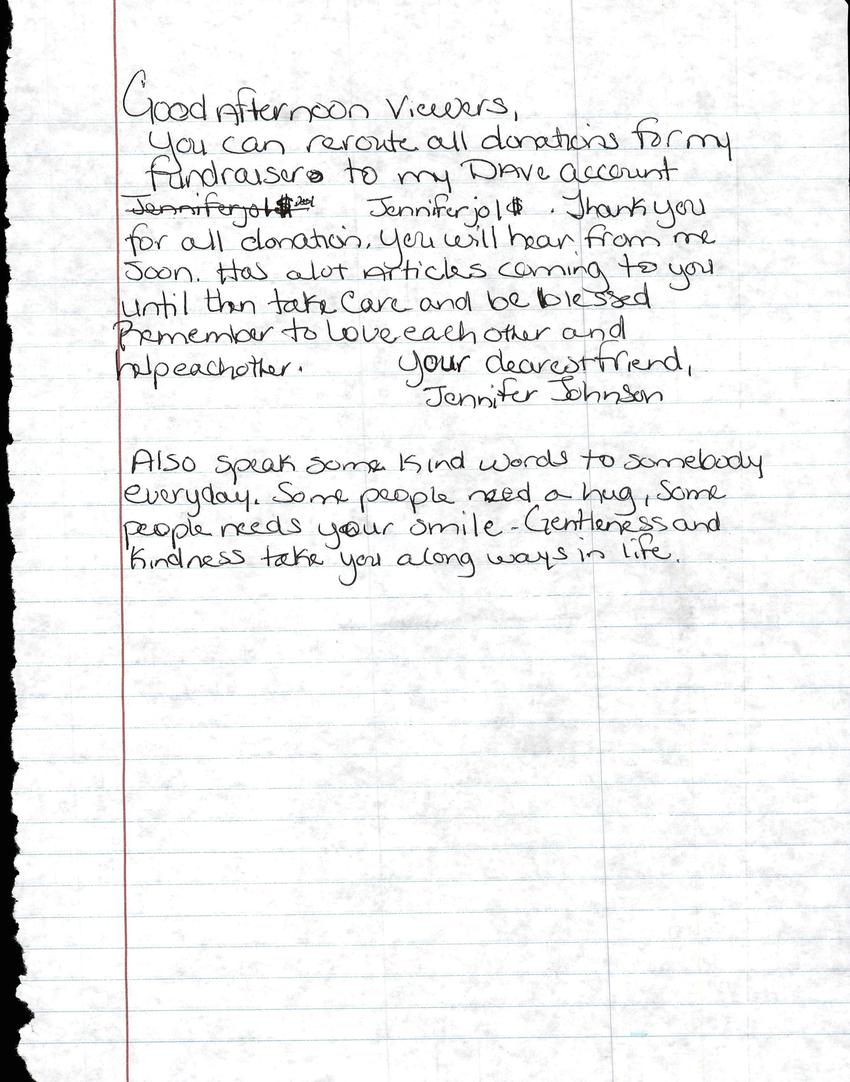 Good Afternoon Viewers,
You can reroute all donations for my
fundraisers to my DAve account
Jenniferjo1$ Jenniferjo1$. Thank you
for all donation. You will hear from me
soon. Has alot Articles coming to you
until then take Care and be blessed
Remember to Love each other and
help eachother. Your dearest friend,
Jennifer Johnson
Also speak some Kind words to somebody
everyday. Some people need a hug, Some
people needs your smile - Gentleness and
Kindness take you along ways in life.